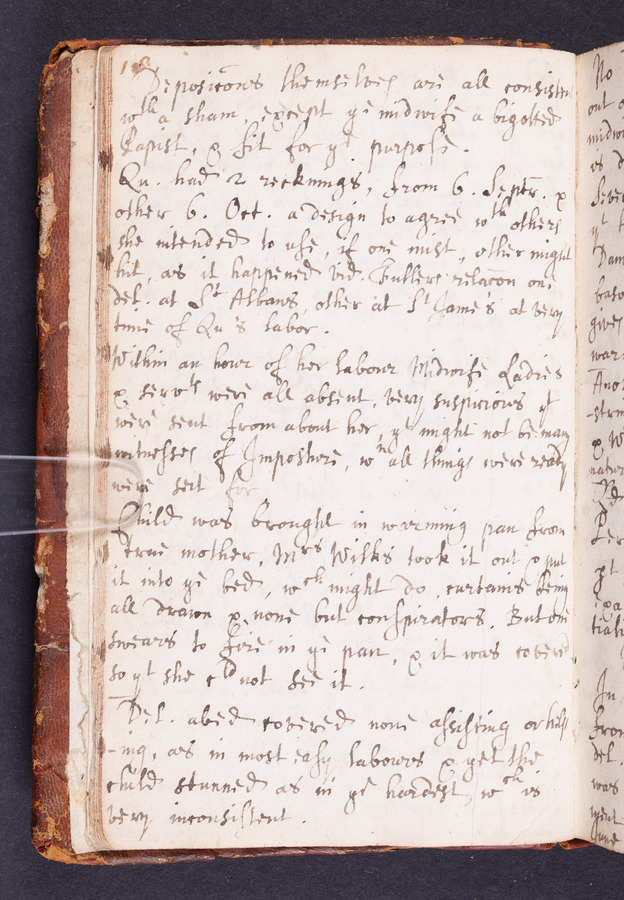 Deposicõns themselves are all consisten
wth a sham, except ye midwife a bigotted
Papist, & fit for ye purpose.
Qu. had 2 recknings, from 6. Septr. &
other 6. Oct. a design to agree wth others
she intended to use, if one mist, other might
hit, as it happened vid. Bullers relacõn on
del. at St Albans, other at St James at very
time of Qu's labor.
Within an hour of her labour Midwife Ladies
& servts were all absent, very suspicious yt
were sent from about her, yt might not be many
witnesses of Imposture, wn all things were ready
were set for
Child was brought in warming pan from
true mother, Mrs Wilks took it out & put
it into ye bed, wch might do, curtains being
all drawn & none but conspirators. But one
swears to fire in ye pan, & it was covered
so yt she cd not see it.
Del. abed covered none assisting or help
-ing, as in most easy labours & yet the
child stunned as in ye hardest, wch is
very inconsistent.
No
out
midwi
es
Sever
yt
Dam
gives
was
Ano
& W
In
from
del.
was